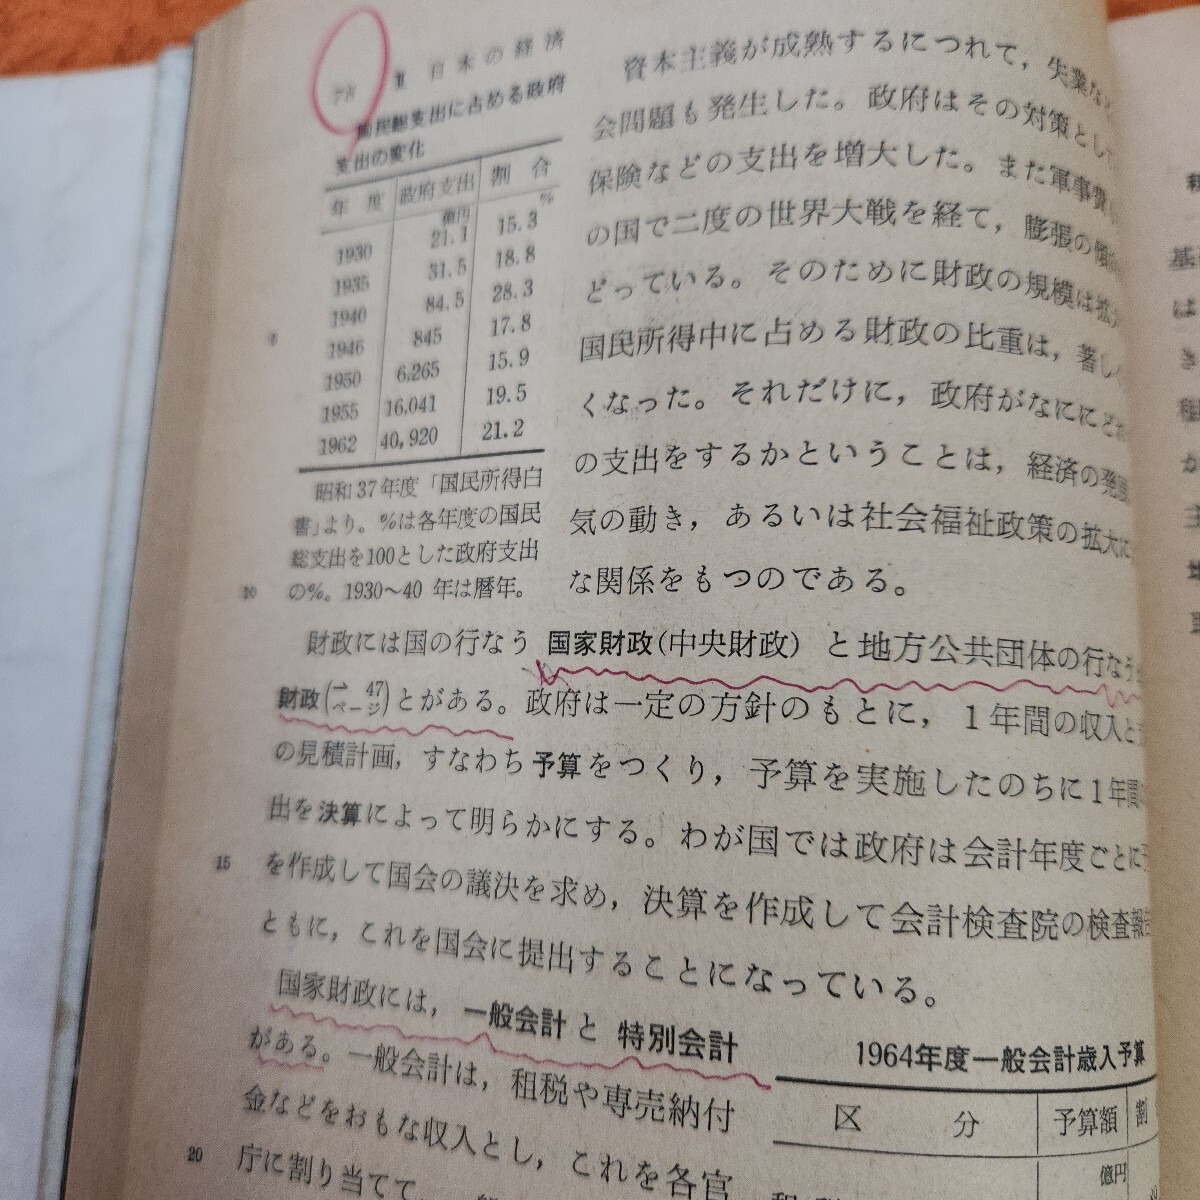 Ⅱ 日本の経済
国民総支出に占める政府
支出の変化
年度 政府支出 割合
億円 %
1930 21.1 15.3
1935 31.5 18.8
1940 84.5 28.3
1946 845 17.8
1950 6,265 15.9
1955 16,041 19.5
1962 40,920 21.2
昭和37年度「国民所得白
書」より。%は各年度の国民
総支出を100とした政府支出
の%。1930〜40年は暦年。
資本主義が成熟するにつれて，失業な
会問題も発生した。政府はその対策とし
保険などの支出を増大した。また軍事費
の国で二度の世界大戦を経て，膨張の傾
どっている。そのために財政の規模は拡
国民所得中に占める財政の比重は，著し
くなった。それだけに，政府がなにに
の支出をするかということは，経済の発
気の動き，あるいは社会福祉政策の拡大
な関係をもつのである。
10
財政には国の行なう国家財政(中央財政)と地方公共団体の行なう
財政(→47ページ)とがある。政府は一定の方針のもとに，1年間の収入と
の見積計画，すなわち予算をつくり，予算を実施したのちに1年間
出を決算によって明らかにする。わが国では政府は会計年度ごとに
15 を作成して国会の議決を求め，決算を作成して会計検査院の検査報
ともに，これを国会に提出することになっている。
国家財政には，一般会計と特別会計
がある。一般会計は，租税や専売納付
金などをおもな収入とし，これを各官
20 庁に割り当てて，
1964年度一般会計歳入予算
区分 予算額 割
億円